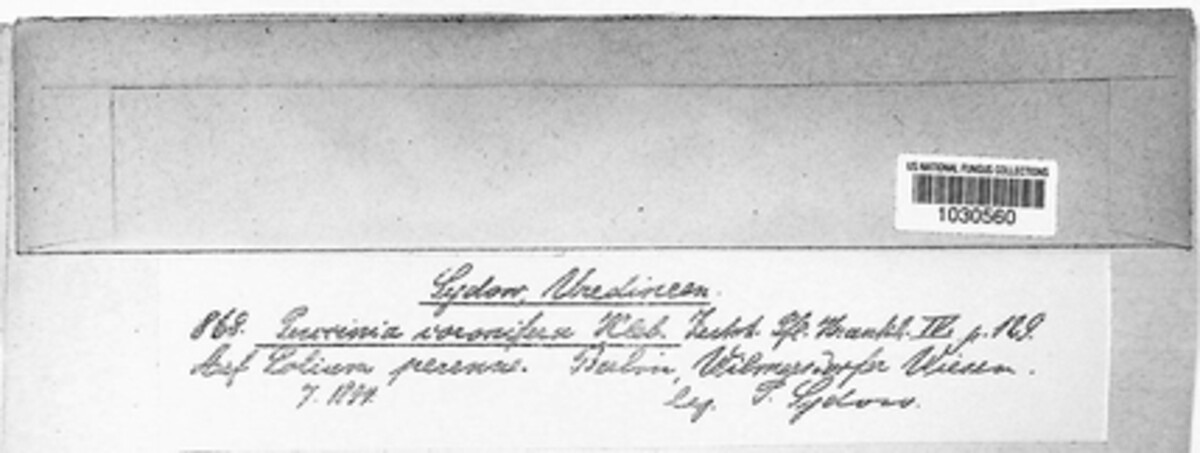 US NATIONAL FUNGUS COLLECTIONS
1030560
Sydow, Uredineen.
868. Puccinia coronifera Kleb. Zeitsch. Pfl. Krankh. IV. p. 129.
Auf Lolium perenne. Berlin, Wilmersdorfer Wiesen.
7. leg. P. Sydow.